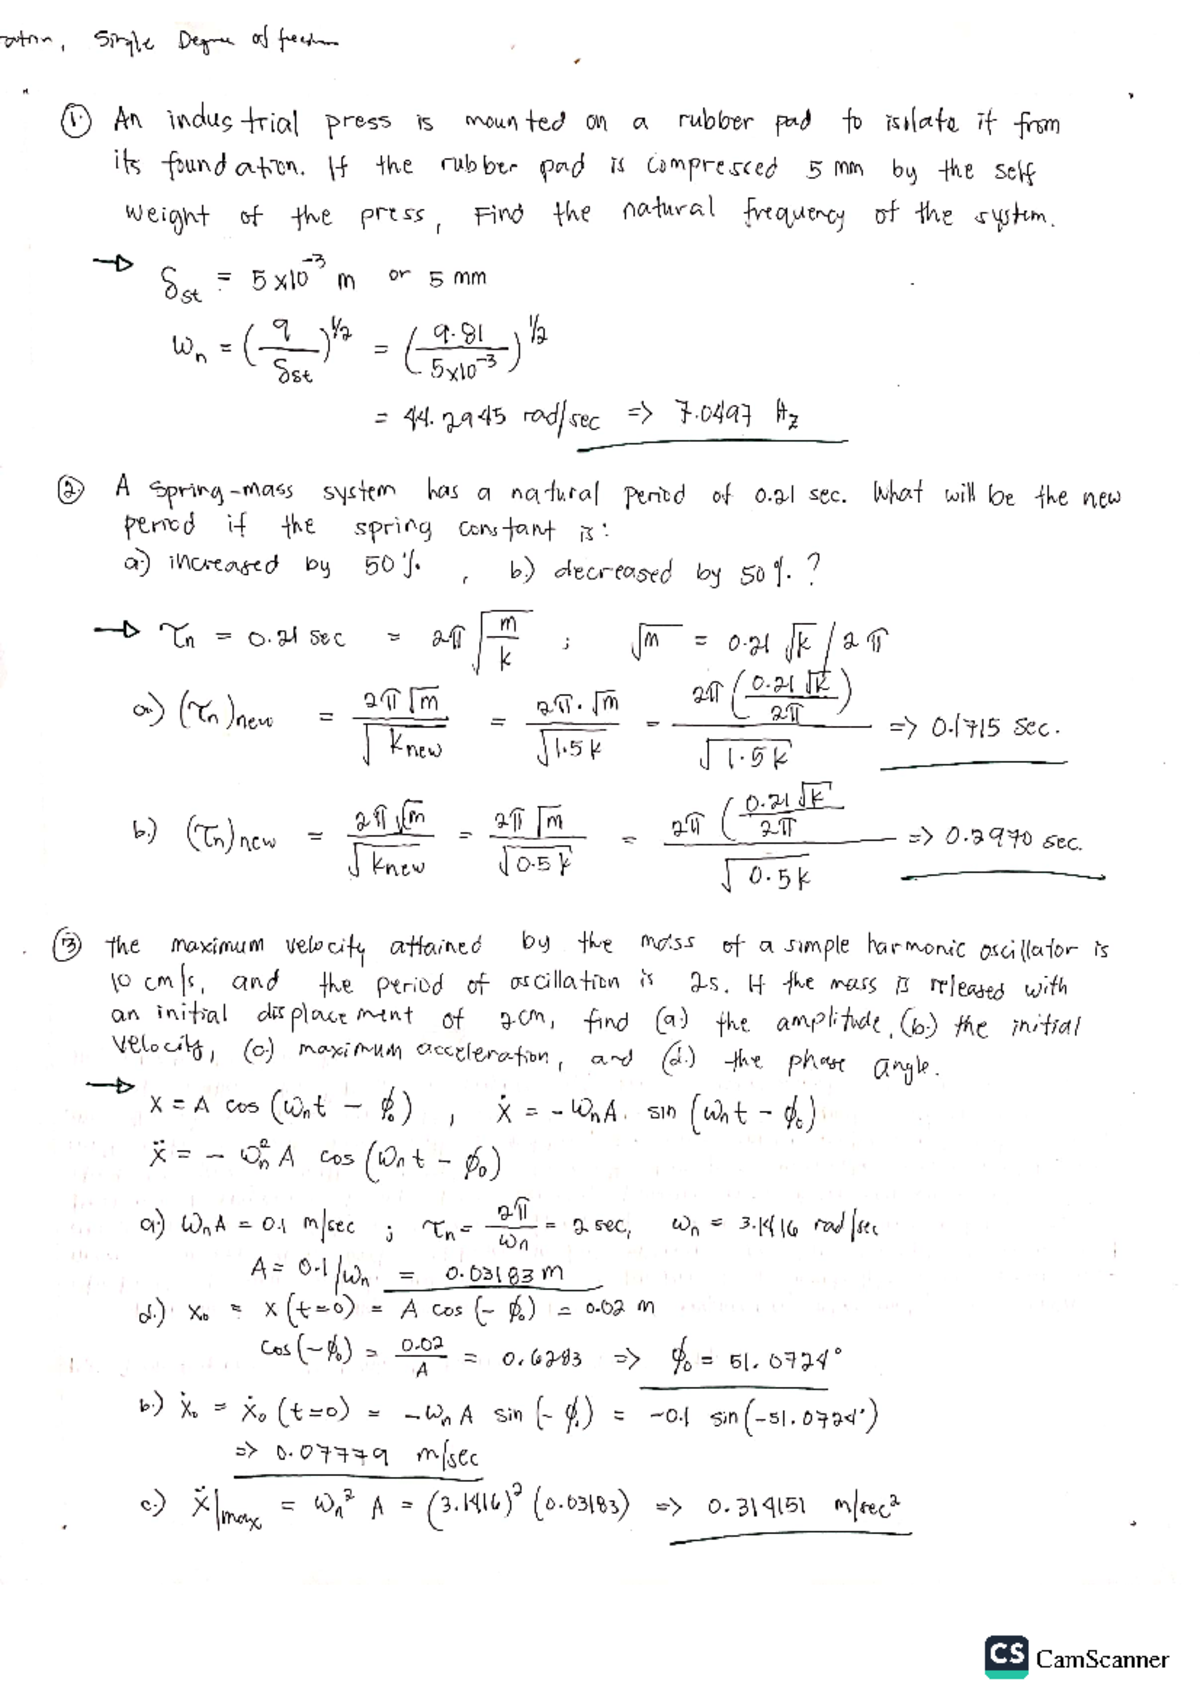 Single Degree of freedom
1. An industrial press is mounted on a rubber pad to isolate it from
its foundation. If the rubber pad is compressed 5 mm by the self
weight of the press, Find the natural frequency of the system.
→ δst = 5x10⁻³ m or 5 mm
ωn = (g/δst)^1/2 = (9.81/5x10⁻³)^1/2
= 44.2945 rad/sec => 7.0497 Hz
2. A spring-mass system has a natural period of 0.21 sec. What will be the new
period if the spring constant is:
a.) increased by 50%, b.) decreased by 50%.?
→ τn = 0.21 sec = 2π√(m/k) ; √m = 0.21 √k / 2π
a.) (τn)new = 2π√m/√knew = 2π·√m/√1.5k = 2π(0.21√k/2π)/√1.5k => 0.1715 sec.
b.) (τn)new = 2π√m/√knew = 2π√m/√0.5k = 2π(0.21√k/2π)/√0.5k => 0.2970 sec.
3. The maximum velocity attained by the mass of a simple harmonic oscillator is
10 cm/s, and the period of oscillation is 2s. If the mass is released with
an initial displacement of 2cm, find (a.) the amplitude, (b.) the initial
velocity, (c.) maximum acceleration, and (d.) the phase angle.
→ x = A cos (ωnt - ϕ₀) , ẋ = - ωnA. sin (ωnt - ϕ₀)
ẍ = - ωn² A cos (ωnt - ϕ₀)
a.) ωnA = 0.1 m/sec ; τn = 2π/ωn = 2 sec, ωn = 3.1416 rad/sec
A = 0.1/ωn = 0.03183 m
d.) x₀ = x (t=0) = A cos (- ϕ₀) = 0.02 m
cos(-ϕ₀) = 0.02/A = 0.6283 => ϕ₀ = 51.0724°
b.) ẋ₀ = ẋ₀ (t=0) = -ωn A sin (- ϕ₀) = -0.1 sin(-51.0724°)
=> 0.07779 m/sec
c.) ẍ|max = ωn² A = (3.1416)² (0.03183) => 0.314151 m/sec²
CS CamScanner